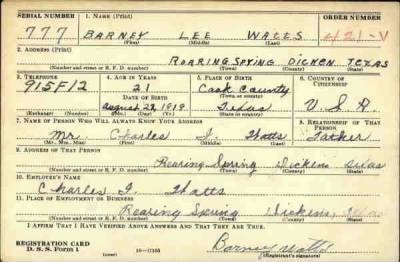 SERIAL NUMBER 1. NAME (Print) ORDER NUMBER
777 BARNEY LEE WATTS 421-V
(First) (Middle) (Last)
2. ADDRESS (Print)
ROARING SPYING DICKEN TEXAS
(Number and street or R. F. D. number) (Town) (County) (State)
3. TELEPHONE 4. AGE IN YEARS 5. PLACE OF BIRTH 6. COUNTRY OF CITIZENSHIP
915F12 21 Cook County
DATE OF BIRTH (Town or county)
August 28, 1919 Texas U.S.A.
(Exchange) (Number) (Mo.) (Day) (Yr.) (State or country)
7. NAME OF PERSON WHO WILL ALWAYS KNOW YOUR ADDRESS 8. RELATIONSHIP OF THAT PERSON
Mr. Charles Watts Father
(Mr., Mrs., Miss) (First) (Middle) (Last)
9. ADDRESS OF THAT PERSON
Roaring Spring Dickens Texas
(Number and street or R. F. D. number) (Town) (County) (State)
10. EMPLOYER'S NAME
Charles Watts
11. PLACE OF EMPLOYMENT OR BUSINESS
Roaring Spring Dickens,
(Number and street or R. F. D. number) (Town) (County) (State)
I AFFIRM THAT I HAVE VERIFIED ABOVE ANSWERS AND THAT THEY ARE TRUE.
REGISTRATION CARD
D. S. S. Form 1 16-17105 Barney Watts
(over) (Registrant's signature)